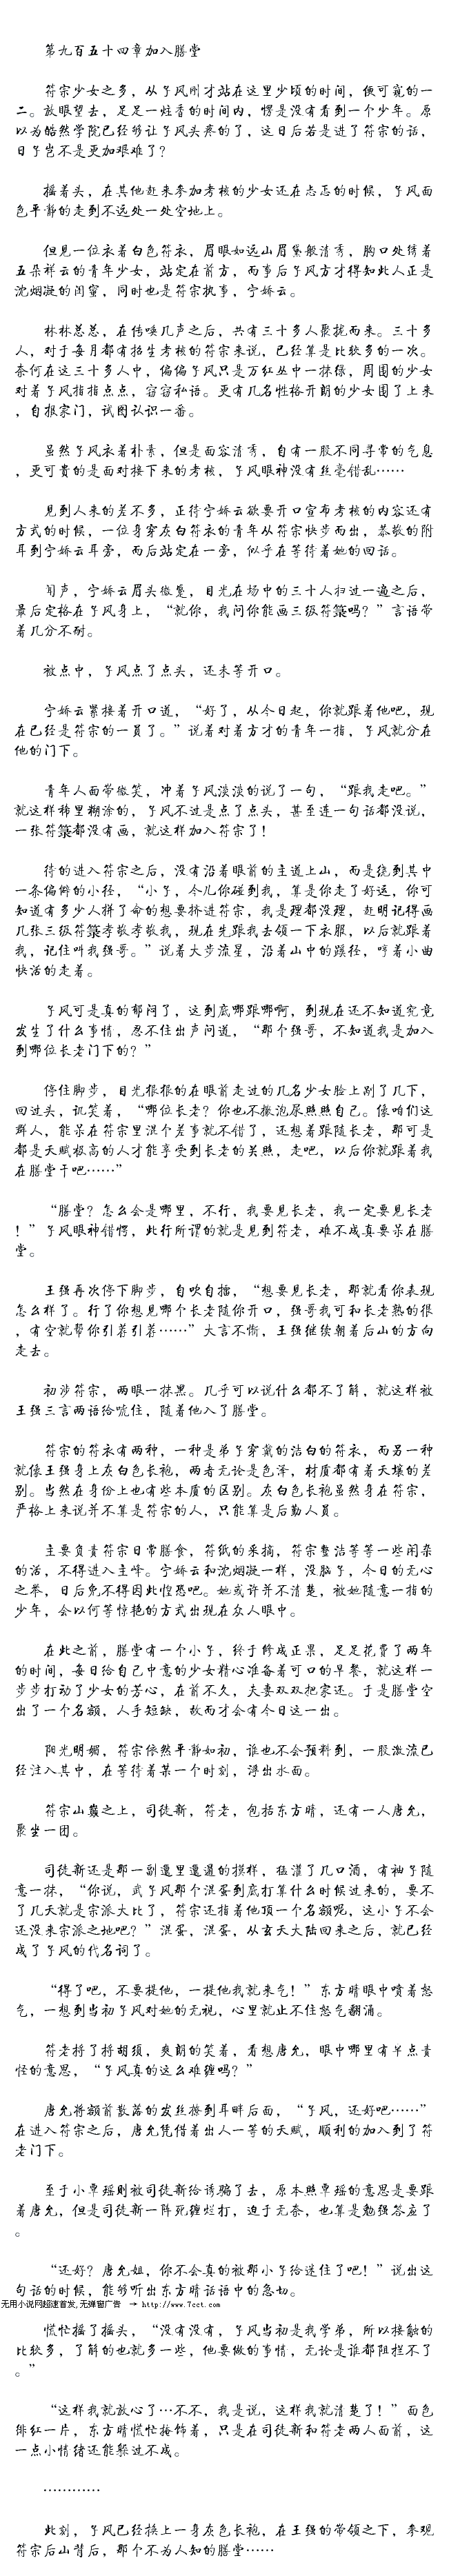 第九百五十四章加入膳堂
符宗少女之多，从予风刚才站在这里少顷的时间，便可窥的一
二。放眼望去，足足一炷香的时间内，愣是没有看到一个少年。原
以为皓然学院已经够让予风头疼的了，这日后若是进了符宗的话，
日子岂不是更加艰难了？
摇着头，在其他赶来参加考核的少女还在忐忑的时候，予风面
色平静的走到不远处一处空地上。
但见一位衣着白色符衣，眉眼如远山眉黛般清秀，胸口处绣着
五朵祥云的青年少女，站定在前方，而事后予风方才得知此人正是
沈烟凝的闺蜜，同时也是符宗执事，宁娇云。
林林总总，在传唤几声之后，共有三十多人聚拢而来。三十多
人，对于每月都有招生考核的符宗来说，已经算是比较多的一次。
奈何在这三十多人中，偏偏予风只是万红丛中一抹绿，周围的少女
对着予风指指点点，窃窃私语。更有几名性格开朗的少女围了上来
，自报家门，试图认识一番。
虽然予风衣着朴素，但是面容清秀，自有一股不同寻常的气息
，更可贵的是面对接下来的考核，予风眼神没有丝毫错乱……
见到人来的差不多，正待宁娇云欲要开口宣布考核的内容还有
方式的时候，一位身穿灰白符衣的青年从符宗快步而出，恭敬的附
耳到宁娇云耳旁，而后站定在一旁，似乎在等待着她的回话。
闻声，宁娇云眉头微蹙，目光在场中的三十人扫过一遍之后，
最后定格在予风身上，“就你，我问你能画三级符箓吗？”言语带
着几分不耐。
被点中，予风点了点头，还未等开口。
宁娇云紧接着开口道，“好了，从今日起，你就跟着他吧，现
在已经是符宗的一員了。”说着对着方才的青年一指，予风就分在
他的门下。
青年人面带微笑，冲着予风淡淡的说了一句，“跟我走吧。”
就这样稀里糊涂的，予风不过是点了点头，甚至连一句话都没说，
一张符箓都没有画，就这样加入符宗了！
待的进入符宗之后，没有沿着眼前的主道上山，而是绕到其中
一条偏僻的小径，“小子，今儿你碰到我，算是你走了好运，你可
知道有多少人拼了命的想要挤进符宗，我是理都没理，赶明记得画
几张三级符箓孝敬孝敬我，现在先跟我去领一下衣服，以后就跟着
我，记住叫我强哥。”说着大步流星，沿着山中的蹊径，哼着小曲
快活的走着。
予风可是真的郁闷了，这到底哪跟哪啊，到现在还不知道究竟
发生了什么事情，忍不住出声问道，“那个强哥，不知道我是加入
到哪位长老门下的？”
停住脚步，目光狠狠的在眼前走过的几名少女脸上剐了几下，
回过头，讥笑着，“哪位长老？你也不撒泡尿照照自己。像咱们这
群人，能呆在符宗里混个差事就不错了，还想着跟随长老，那可是
都是天赋极高的人才能享受到长老的关照，走吧，以后你就跟着我
在膳堂干吧……”
“膳堂？怎么会是哪里，不行，我要见长老，我一定要见长老
！”予风眼神错愕，此行所谓的就是见到符老，难不成真要呆在膳
堂。
王强再次停下脚步，自吹自擂，“想要见长老，那就看你表现
怎么样了。行了你想见哪个长老随你开口，强哥我可和长老熟的很
，有空就帮你引荐引荐……”大言不惭，王强继续朝着后山的方向
走去。
初涉符宗，两眼一抹黑。几乎可以说什么都不了解，就这样被
王强三言两语给唬住，随着他入了膳堂。
符宗的符衣有两种，一种是弟子穿戴的洁白的符衣，而另一种
就像王强身上灰白色长袍，两者无论是色泽，材质都有着天壤的差
别。当然在身份上也有些本质的区别。灰白色长袍虽然身在符宗，
严格上来说并不算是符宗的人，只能算是后勤人員。
主要负责符宗日常膳食，符纸的采摘，符宗整洁等等一些闲杂
的活，不得进入主峰。宁娇云和沈烟凝一样，没脑子，今日的无心
之举，日后免不得因此惶恐吧。她或许并不清楚，被她随意一指的
少年，会以何等惊艳的方式出现在众人眼中。
在此之前，膳堂有一个小子，终于修成正果，足足花费了两年
的时间，每日给自己中意的少女精心准备着可口的早餐，就这样一
步步打动了少女的芳心，在前不久，夫妻双双把家还。于是膳堂空
出了一个名额，人手短缺，故而才会有今日这一出。
阳光明媚，符宗依然平静如初，谁也不会预料到，一股激流已
经注入其中，在等待着某一个时刻，浮出水面。
符宗山巅之上，司徒新，符老，包括东方晴，还有一人唐允，
聚坐一团。
司徒新还是那一副邋里邋遢的摸样，猛灌了几口酒，有袖子随
意一抹，“你说，武予风那个混蛋到底打算什么时候过来的，要不
了几天就是宗派大比了，符宗还指着他顶一个名额呢，这小子不会
还没来宗派之地吧？”混蛋，混蛋，从玄天大陆回来之后，就已经
成了予风的代名词了。
“得了吧，不要提他，一提他我就来气！”东方晴眼中喷着怒
气，一想到当初予风对她的无视，心里就止不住怒气翻涌。
符老捋了捋胡须，爽朗的笑着，看想唐允，眼中哪里有半点责
怪的意思，“予风真的这么难缠吗？”
唐允将额前散落的发丝捲到耳畔后面，“予风，还好吧……”
在进入符宗之后，唐允凭借着出人一等的天赋，顺利的加入到了符
老门下。
至于小覃瑶则被司徒新给诱骗了去，原本照覃瑶的意思是要跟
着唐允，但是司徒新一阵死缠烂打，迫于无奈，也算是勉强答应了
。
“还好？唐允姐，你不会真的被那小子给迷住了吧！”说出这
句话的时候，能够听出东方晴话语中的急切。
无用小说网超速首发,无弹窗广告 → http://www.7cct.com
慌忙摇了摇头，“没有没有，予风当初是我学弟，所以接触的
比较多，了解的也就多一些，他要做的事情，无论是谁都阻拦不了
。”
“这样我就放心了…不不，我是说，这样我就清楚了！”面色
绯红一片，东方晴慌忙掩饰着，只是在司徒新和符老两人面前，这
一点小情绪还能躲过不成。
…………
此刻，予风已经换上一身灰色长袍，在王强的带领之下，参观
符宗后山背后，那个不为人知的膳堂……